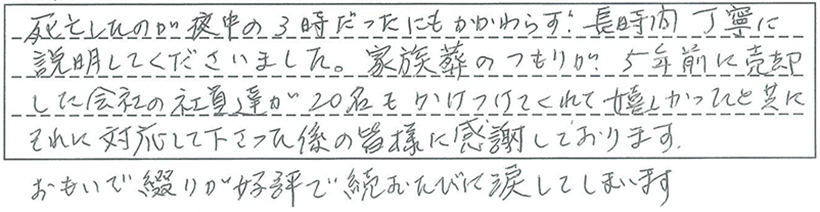 死亡したのが夜中の3時だったにもかかわらず、長時間 丁寧に
説明してくださいました。家族葬のつもりが、5年前に売却
した会社の社員達が20名もかけつけてくれて嬉しかったと共に
それに対応して下さった後の皆様に感謝しております。
おもいで綴りが好評で続おたびに涙してしまいます